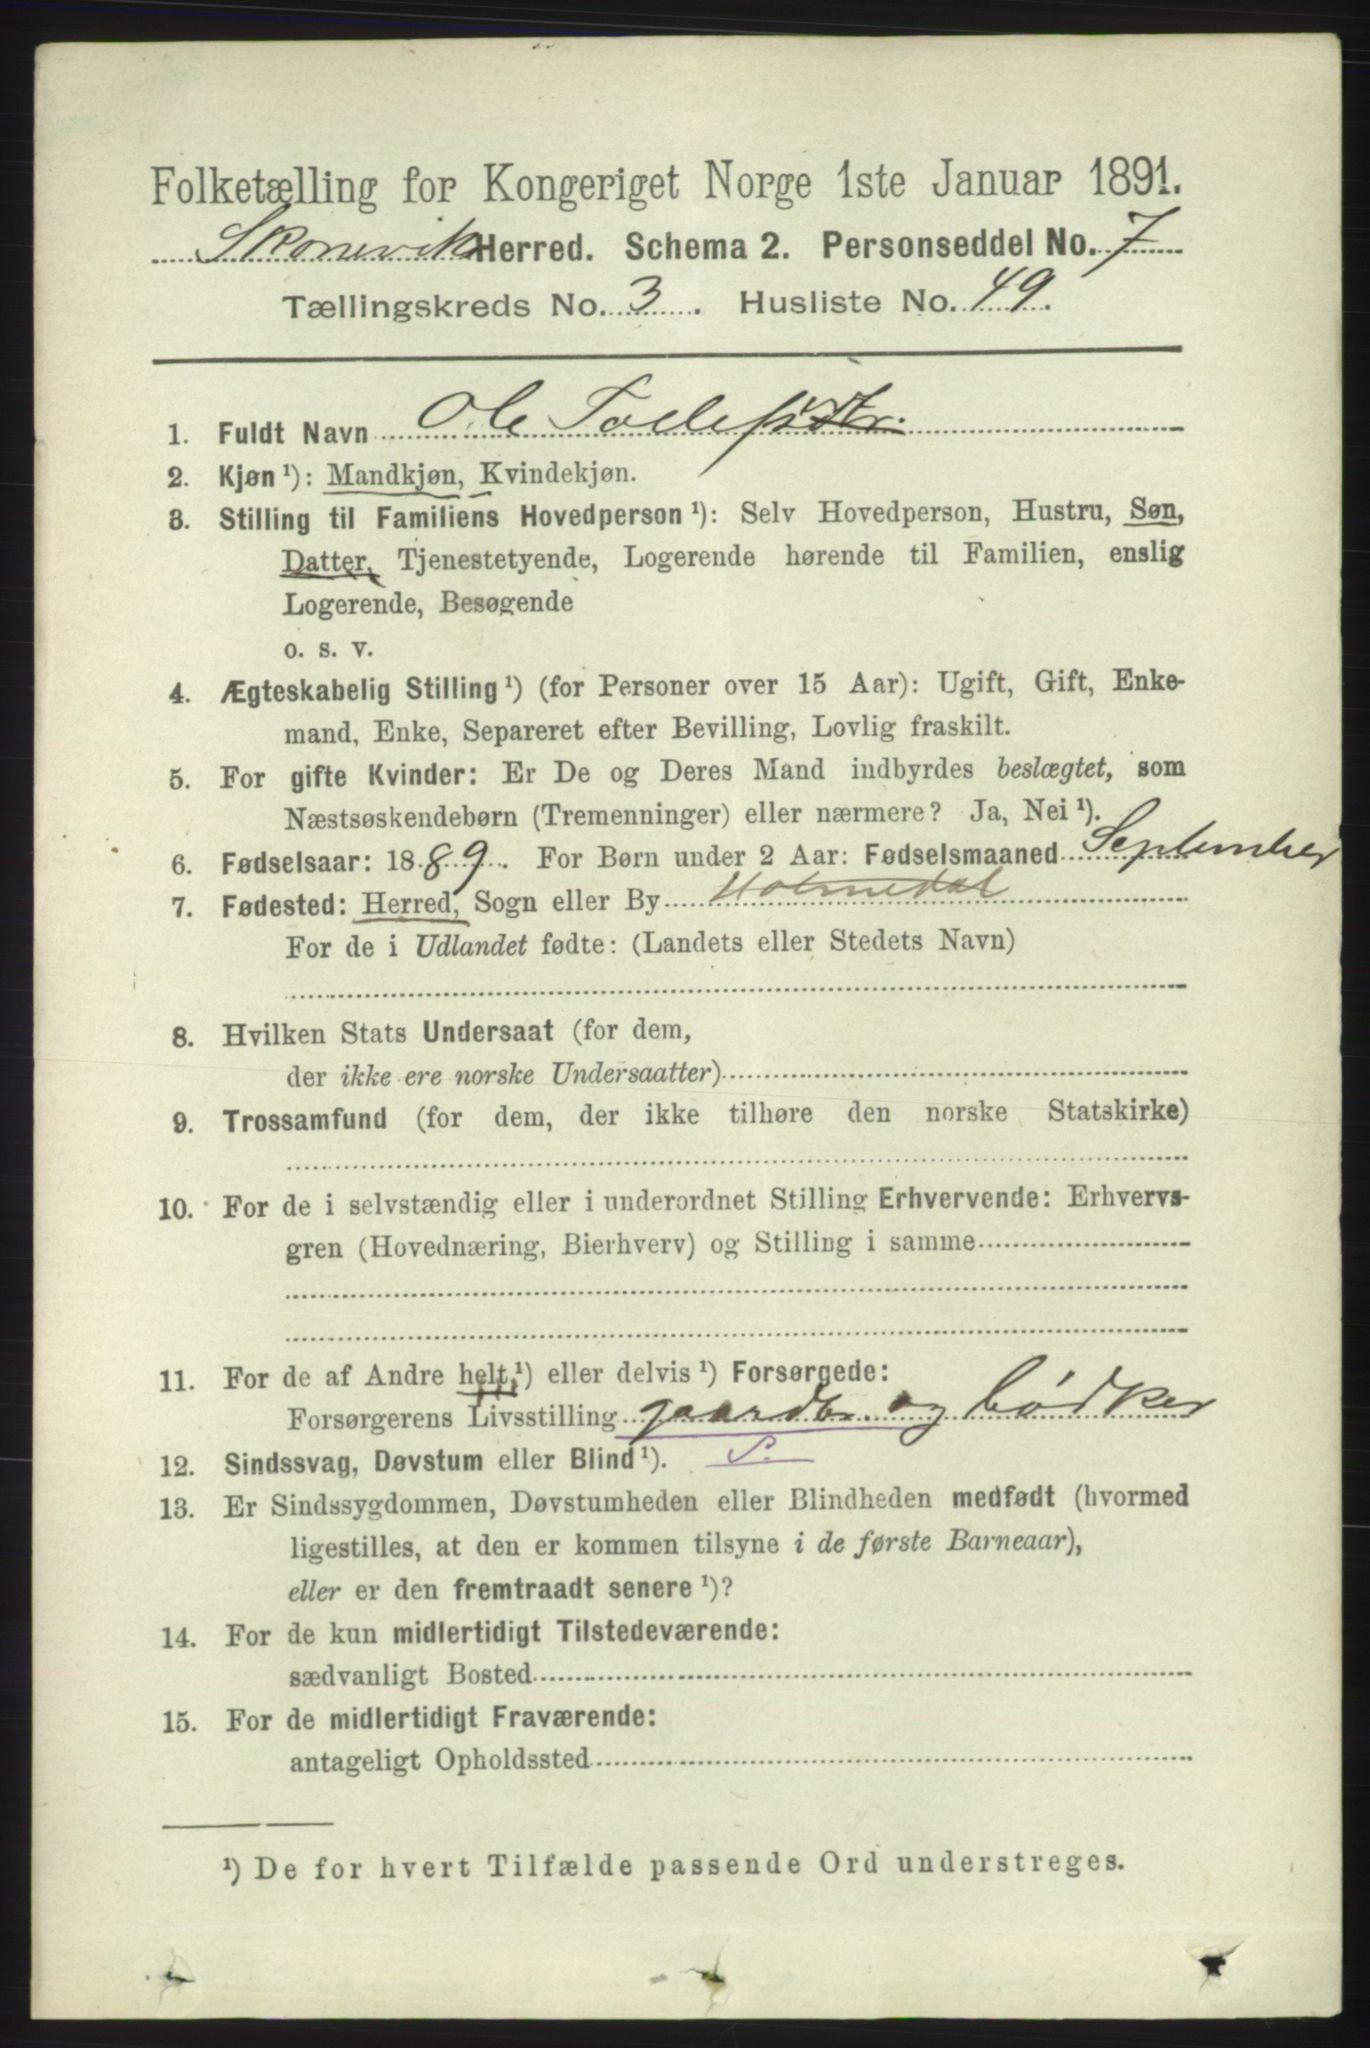 Folketælling for Kongeriget Norge 1ste Januar 1891.
Skonevik Herred. Schema 2. Personseddel No. 7
Tællingskreds No. 3. Husliste No. 49.
1. Fuldt Navn Ole
2. Kjøn ¹): Mandkjøn, Kvindekjøn.
3. Stilling til Familiens Hovedperson ¹): Selv Hovedperson, Hustru, Søn,
Datter, Tjenestetyende, Logerende hørende til Familien, enslig
Logerende, Besøgende
o. s. v.
4. Ægteskabelig Stilling ¹) (for Personer over 15 Aar): Ugift, Gift, Enke-
mand, Enke, Separeret efter Bevilling, Lovlig fraskilt.
5. For gifte Kvinder: Er De og Deres Mand indbyrdes beslægtet, som
Næstsøskendebørn (Tremenninger) eller nærmere? Ja, Nei ¹).
6. Fødselsaar: 1889. For Børn under 2 Aar: Fødselsmaaned September
7. Fødested: Herred, Sogn eller By Holmedal
For de i Udlandet fødte: (Landets eller Stedets Navn)
8. Hvilken Stats Undersaat (for dem,
der ikke ere norske Undersaatter)
9. Trossamfund (for dem, der ikke tilhøre den norske Statskirke)
10. For de i selvstændig eller i underordnet Stilling Erhvervende: Erhvervs-
gren (Hovednæring, Bierhverv) og Stilling i samme
11. For de af Andre helt, ¹) eller delvis ¹) Forsørgede:
Forsørgerens Livsstilling gaardbr. og bødker
12. Sindssvag, Døvstum eller Blind ¹). S.
13. Er Sindssygdommen, Døvstumheden eller Blindheden medfødt (hvormed
ligestilles, at den er kommen tilsyne i de første Barneaar),
eller er den fremtraadt senere ¹)?
14. For de kun midlertidigt Tilstedeværende:
sædvanligt Bosted
15. For de midlertidigt Fraværende:
antageligt Opholdssted
¹) De for hvert Tilfælde passende Ord understreges.